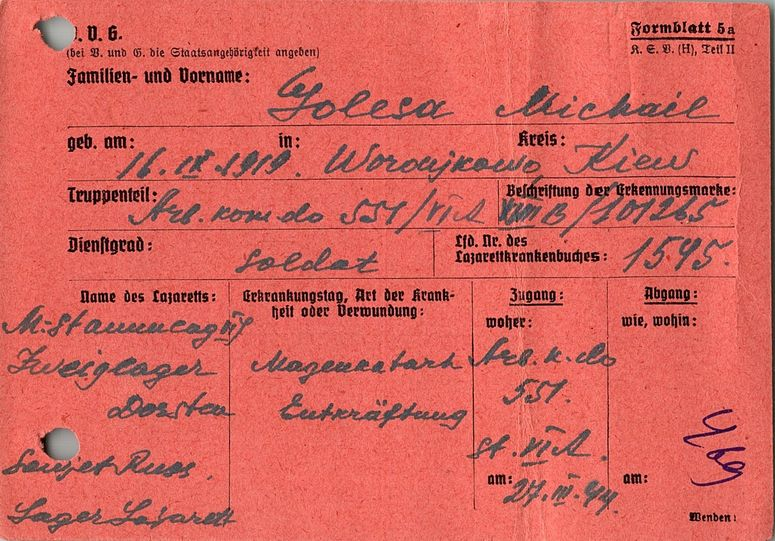 D. V. G. Formblatt 5a
(bei V. und G. die Staatsangehörigkeit angeben) K. S. V. (H), Teil II
Familien- und Vorname:
Golesa Michail
geb. am: in: Kreis:
16. IX. 1919. Kiew
Truppenteil: Beschriftung der Erkennungsmarke:
Arb. kom do 551/VI A XVIII B/101265
Dienstgrad: Lfd. Nr. des
Lazarettkrankenbuches:
Soldat 1595.
Name des Lazaretts: Erkrankungstag, Art der Krank-
heit oder Verwundung: Zugang: Abgang:
woher: wie, wohin:
M-Stammlag
Zweiglager Magenkatarh Arb. k. do
Dorsten Entkräftung 551.
St. VI A.
Sowjet Russ. am: am:
27. III. 44.
Lager Lazarett
Wenden!